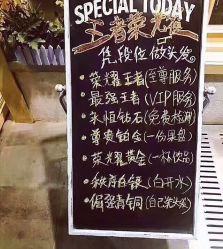 SPECIAL TODAY
王者荣耀
凭段位做头发
荣耀王者(至尊服务)
最强王者(VIP服务)
永恒钻石(免费检测)
尊贵铂金(一份果盘)
荣耀黄金(一杯饮品)
秩序白银(白开水)
倔强青铜(自己洗头)